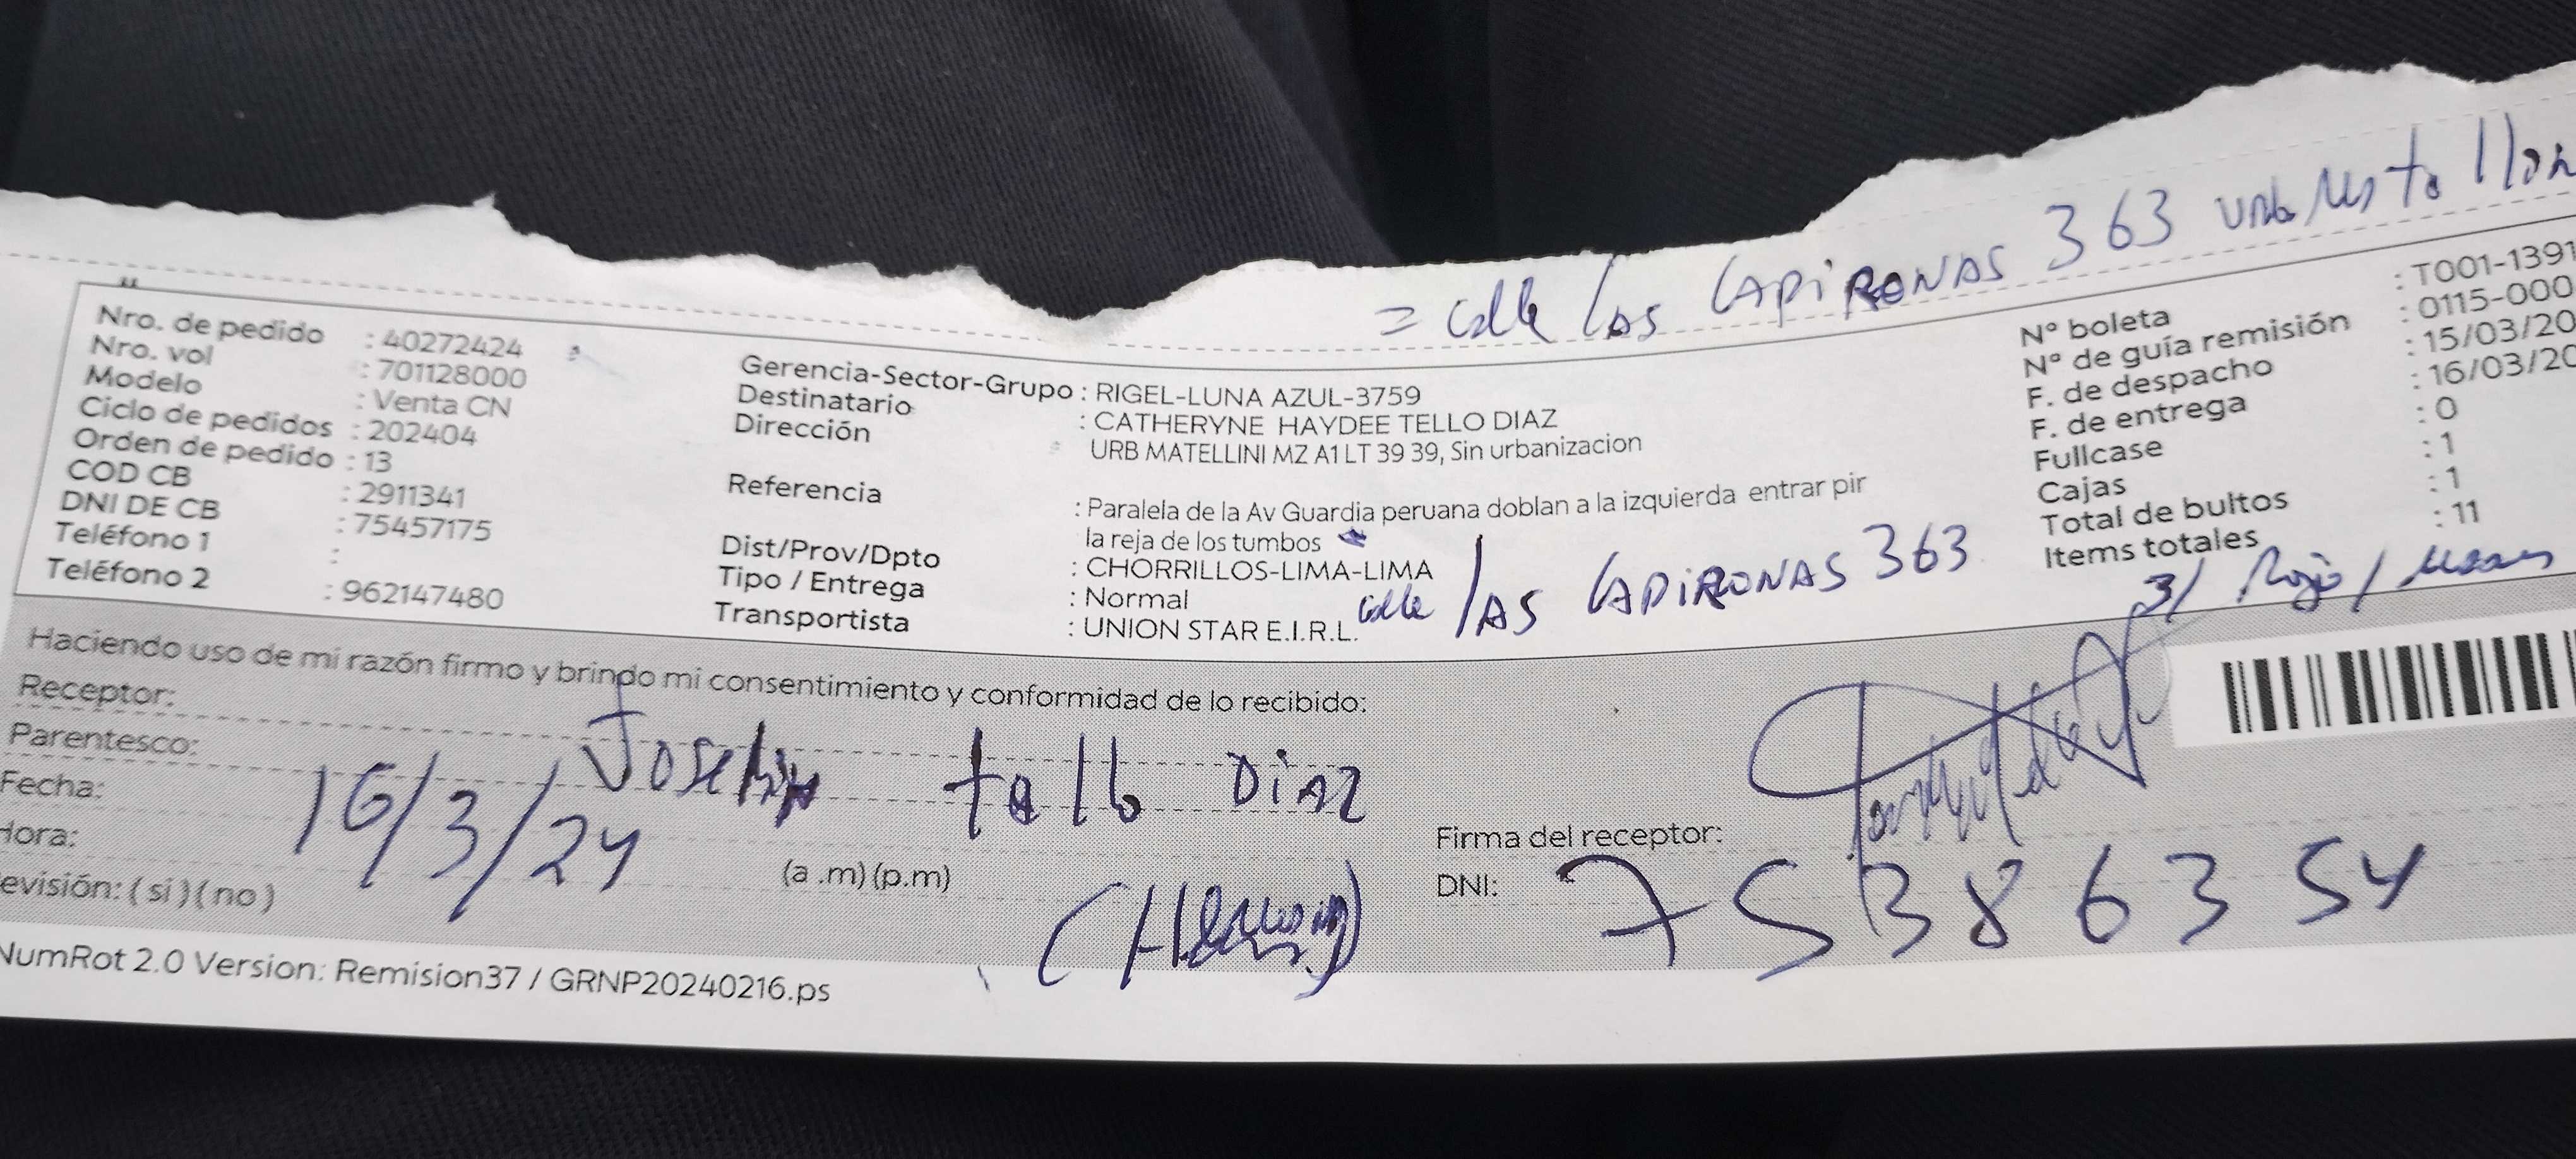 = Calle Las CAPIRONAS 363
Nro. de pedido : 40272424
Nro. vol : 701128000
Modelo : Venta CN
Ciclo de pedidos : 202404
Orden de pedido : 13
COD CB : 2911341
DNI DE CB : 75457175
Teléfono 1 :
Teléfono 2 : 962147480
Gerencia-Sector-Grupo : RIGEL-LUNA AZUL-3759
Destinatario : CATHERYNE HAYDEE TELLO DIAZ
Dirección URB MATELLINI MZ A1 LT 39 39, Sin urbanizacion
Referencia : Paralela de la Av Guardia peruana doblan a la izquierda entrar pir
la reja de los tumbos
Dist/Prov/Dpto : CHORRILLOS-LIMA-LIMA
Tipo / Entrega : Normal
Transportista : UNION STAR E.I.R.L.
Calle LAS CAPIRONAS 363
N° boleta : T001-1391
N° de guía remisión : 0115-000
F. de despacho : 15/03/20
F. de entrega : 16/03/20
Fullcase : 0
Cajas : 1
Total de bultos : 1
Items totales : 11
3/ Rojo /
Haciendo uso de mi razón firmo y brindo mi consentimiento y conformidad de lo recibido:
Receptor:
Tello Diaz
Parentesco:
Fecha: 16/3/24
Hora: (a .m) (p.m)
evisión: ( si ) ( no )
Firma del receptor:
DNI: 75386354
NumRot 2.0 Version: Remision37 / GRNP20240216.ps